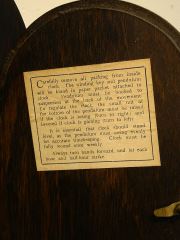 Carefully remove all packing from inside
clock. The winding key and pendulum
will be found in paper packet attached to
clock. Pendulum must be hooked to
suspension at the back of the movement.
To regulate the clock, the small nut at
bottom of the pendulum must be raised
if the clock is losing (turn to right) and
lowered if clock is gaining (turn to left).
It is essential that clock should stand
level, as the pendulum must swing evenly
for accurate timekeeping. Clock must be
fully wound once weekly.
Always turn hands forward, and let each
hour and half-hour strike.